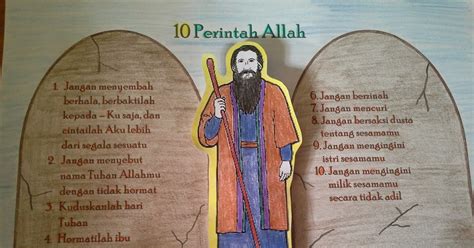 10 Perintah Allah
1 Jangan menyembah
berhala, berbaktilah
kepada - Ku saja, dan
cintailah Aku lebih
dari segala sesuatu
2. Jangan menyebut
nama Tuhan Allahmu
dengan tidak hormat
3. Kuduskanlah hari
Tuhan
4 Hormatilah ibu
6. Jangan berzinah
7. Jangan mencuri
8. Jangan bersaksi dusta
tentang sesamamu
9. Jangan mengingini
istri sesamamu
10. Jangan mengingini
milik sesamamu
secara tidak adil